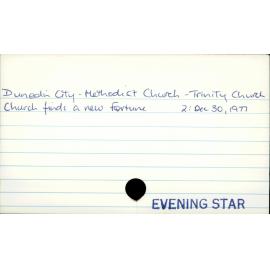 Dunedin City - Methodist Church - Trinity Church
Church finds a new fortune 2: Dec 30, 1977
EVENING STAR